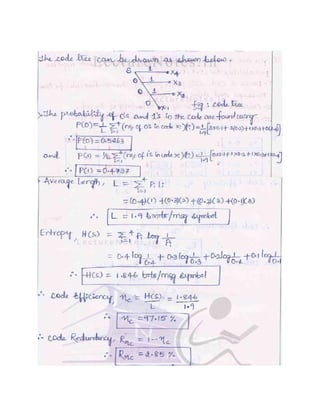 The code tree can be drawn as shown below.
0 1 x4
0 1 x3
0 1 x2
0 x1
fig: code tree
The probability of 0's and 1's in the code are found using
P(0) = 1/L Σ (no of 0s in code xi)(Pi) = 1/1.9
∴ P(0) = 0.5263
and P(1) = 1/L Σ (no of 1s in code xi)(Pi) = 1/1.9
∴ P(1) = 0.4737
Average length, L = Σ Pi li
= (0.4)(1) + (0.3)(2) + (0.2)(3) + (0.1)(3)
∴ L = 1.9 binits/msg symbol
Entropy H(S) = Σ Pi log 1/Pi
= 0.4 log 1/0.4 + 0.3 log 1/0.3 + 0.2 log 1/0.2 + 0.1 log 1/0.1
∴ H(S) = 1.846 bits/msg symbol
∴ code Efficiency, ηc = H(S)/L = 1.846/1.9
∴ ηc = 97.15 %
∴ code Redundancy, Rηc = 1 - ηc
∴ Rηc = 2.85 %